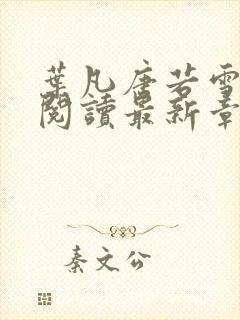 葉凡唐若雪
閱讀最新章
秦文公